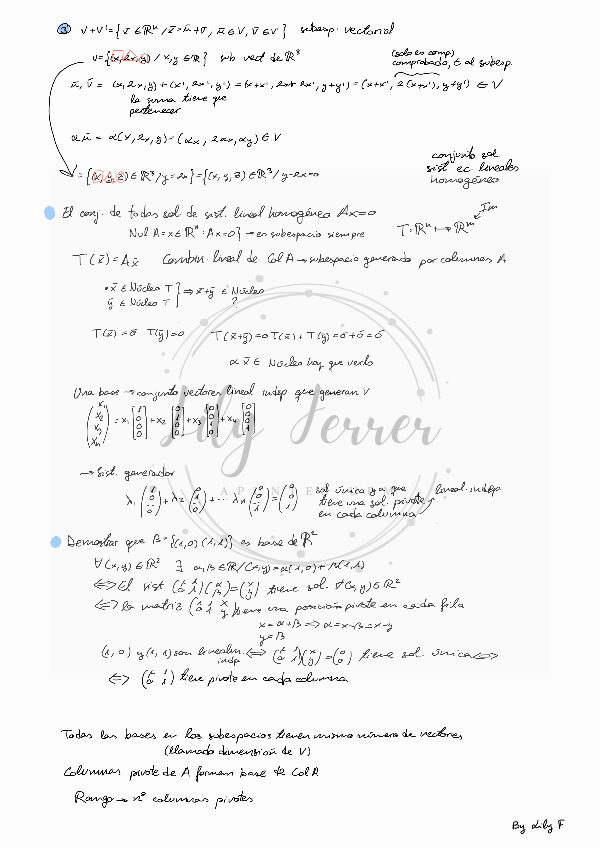 ③ V+V'={x̄ ∈ ℝⁿ / x̄=ū+v̄, ū∈V, v̄∈V'} subesp. vectorial
V={(x,2x,y) / x,y ∈ ℝ} sub vect de ℝ³
(solo es comp)
comprobado, ∈ al subesp.
ū, v̄ = (x,2x,y)+(x',2x',y')=(x+x', 2x+2x', y+y')=(x+x', 2(x+x'), y+y') ∈ V
la suma tiene que
pertenecer
αū = α(x,2x,y)=(αx, 2αx, αy) ∈ V
V={(x,y,z)∈ℝ³/y=2x}={(x,y,z)∈ℝ³/y-2x=0
conjunto sol
sist ec lineales
homogéneo
El conj. de todas sol de sist. lineal homogéneo Ax=0
Nul A=x∈ℝⁿ:Ax=0} → es subespacio siempre
T:ℝⁿ↦ℝᵐ
Im
T(x̄)=Ax̄ Combin. lineal de Col A → subespacio generado por columnas A
• x̄ ∈ Núcleo T
ȳ ∈ Núcleo T } ⇒ x̄+ȳ ∈ Núcleo
?
T(x̄)=ō T(ȳ)=0 T(x̄+ȳ)=0 T(x̄)+T(ȳ)=ō+ō=ō
α x̄ ∈ Núcleo hay que verlo
Una base → conjunto vectores lineal indep que generan V
(x₁ x₂ x₃ x₄) = x₁ [1 0 0 0] + x₂ [0 1 0 0] + x₃ [0 0 1 0] + x₄ [0 0 0 1]
Lily Ferrer
APUNTES
→ Sist. generador
λ₁ (1 0 ... 0) + λ₂ (0 1 ... 0) + ... λₙ (0 0 ... 1) = (0 0 ... 0) sol única ya que
tiene una sol. pivote
en cada columna
lineal. indep
Demostrar que β={(1,0)(1,1)} es base de ℝ²
∀(x,y)∈ℝ² ∃ α,β∈ℝ/(x,y)=α(1,0)+β(1,1)
⇔ El sist (1 1 0 1)(α β)=(x y) tiene sol. ∀(x,y)∈ℝ²
⇔ la matriz (1 1 x 0 1 y) tiene una posición pivote en cada fila
x=α+β ⇒ α=x-β=x-y
y=β
(1,0) y (1,1) son linealm. indp ⇔ (1 1 0 1)(x y)=(0 0) tiene sol. única ⇔
⇔ (1 1 0 1) tiene pivote en cada columna
Todas las bases en los subespacios tienen mismo número de vectores
(llamado dimensión de V)
Columnas pivote de A forman base de Col A
Rango → nº columnas pivotes
By Lily F